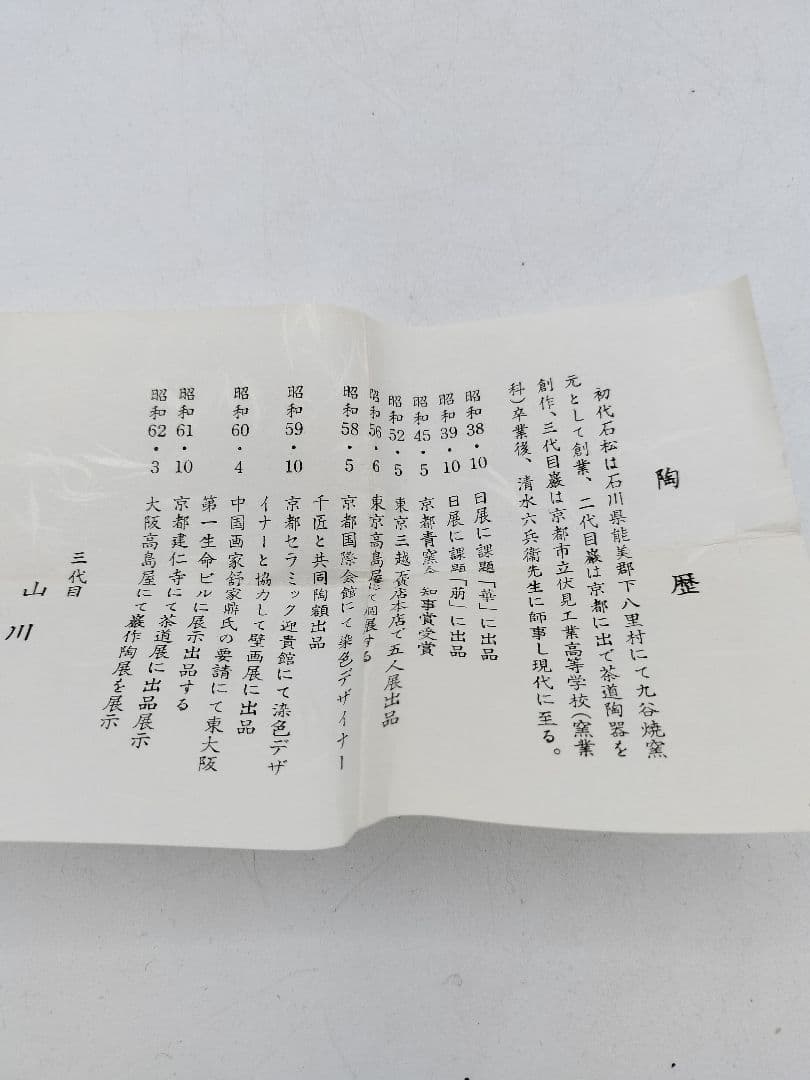 陶歴
初代石松は石川県能美郡下八里村にて九谷焼窯
元として創業、二代目巖は京都に出で茶道陶器を
創作、三代目巖は京都市立伏見工業高等学校(窯業
科)卒業後、清水六兵衛先生に師事し現代に至る。
昭和38・10 日展に課題「華」に出品
昭和39・10 日展に課題「萠」に出品
昭和45・5 京都青窯会 知事賞受賞
昭和52・5 東京三越百貨店本店で五人展出品
昭和56・6 東京高島屋にて個展する
昭和58・5 京都国際会館にて染色デザイナー
千匠と共同陶額出品
昭和59・10 京都セラミック迎貴館にて染色デザ
イナーと協力して壁画展に出品
昭和60・4 中国画家舒家 氏の要請にて東大阪
第一生命ビルに展示出品する
昭和61・10 京都建仁寺にて茶道展に出品展示
昭和62・3 大阪高島屋にて巖作陶展を展示
三代目
山川